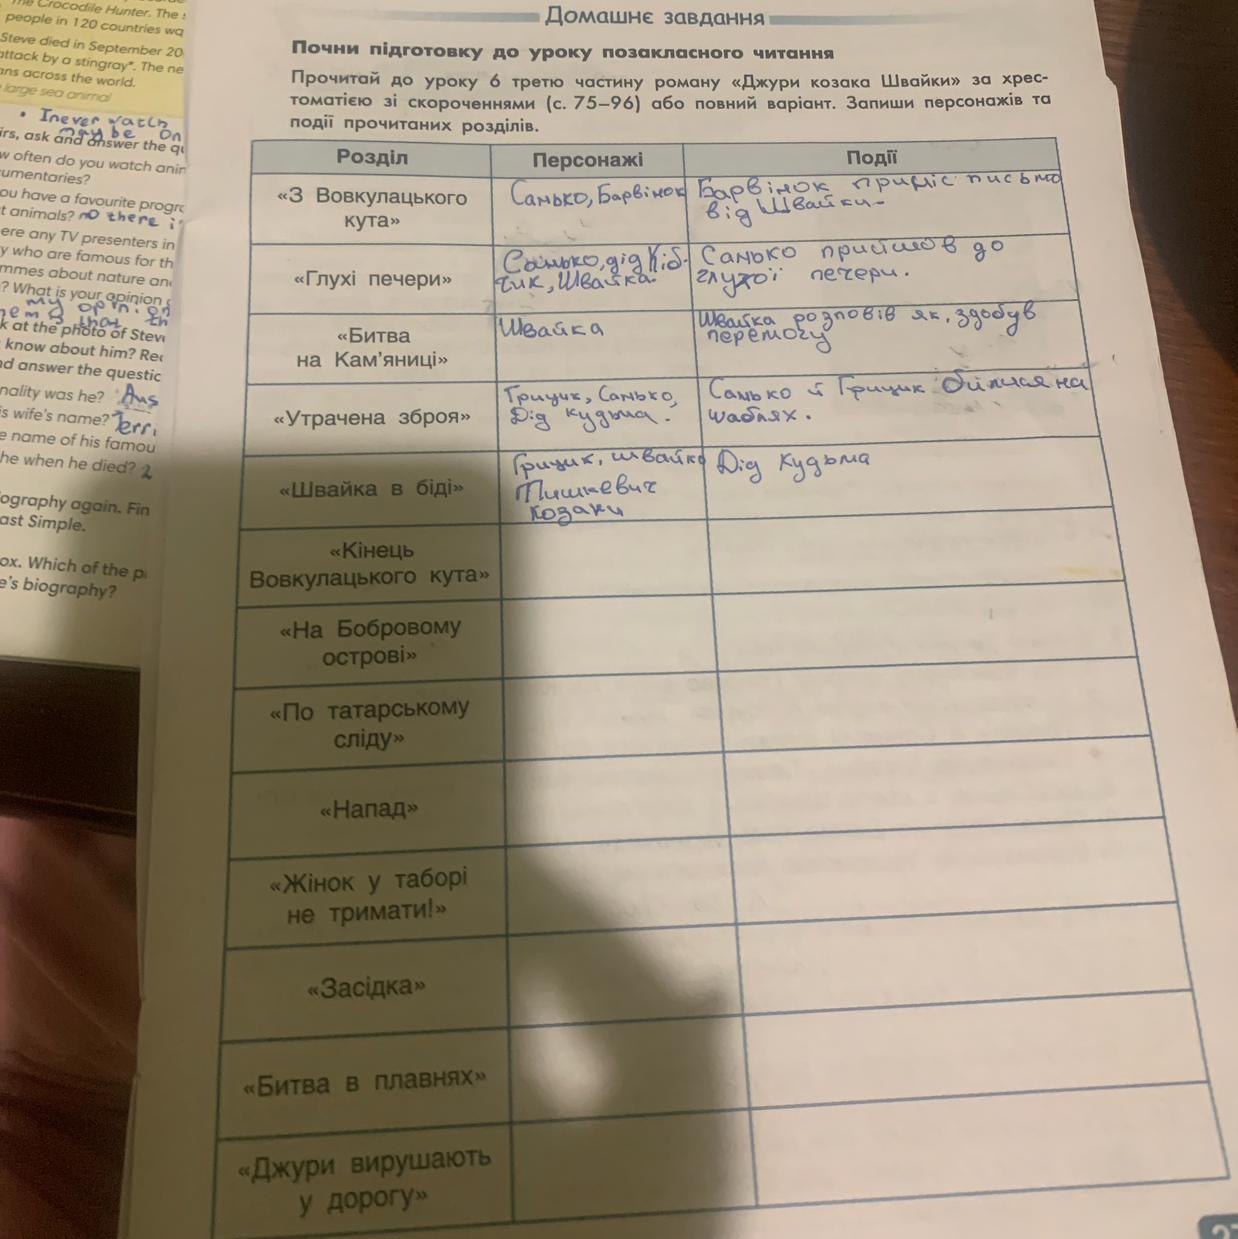 The Crocodile Hunter. The
people in 120 countries wa
Steve died in September 20
attack by a stingray*. The ne
ans across the world.
large sea animal
• I never watch
maybe on
irs, ask and answer the qu
w often do you watch anim
cumentaries?
ou have a favourite progra
t animals? no there i
ere any TV presenters in
y who are famous for th
mmes about nature and
? What is your opinion
my opin. on
them is that th
k at the photo of Steve
know about him? Rea
nd answer the questic
nality was he? Aus
is wife's name? Terri
e name of his famou
he when he died? 2
ography again. Fin
ast Simple.
ox. Which of the p
e's biography?
Домашнє завдання
Почни підготовку до уроку позакласного читання
Прочитай до уроку 6 третю частину роману «Джури козака Швайки» за хрес-
томатією зі скороченнями (с. 75–96) або повний варіант. Запиши персонажів та
події прочитаних розділів.
Розділ Персонажі Події
«З Вовкулацького
кута»
Санько, Барвінок
Барвінок приніс письмо
від Швайки.
«Глухі печери»
Санько, дід Кіб-
чик, Швайка.
Санько прийшов до
глухої печери.
«Битва
на Кам'яниці»
Швайка
Швайка розповів як, здобув
перемогу
«Утрачена зброя»
Грицик, Санько,
Дід Кудьма.
Санько й Грицик билися на
шаблях.
«Швайка в біді»
Грицик, швайка
Тишкевич
козаки
Дід Кудьма
«Кінець
Вовкулацького кута»
«На Бобровому
острові»
«По татарському
сліду»
«Напад»
«Жінок у таборі
не тримати!»
«Засідка»
«Битва в плавнях»
«Джури вирушають
у дорогу»